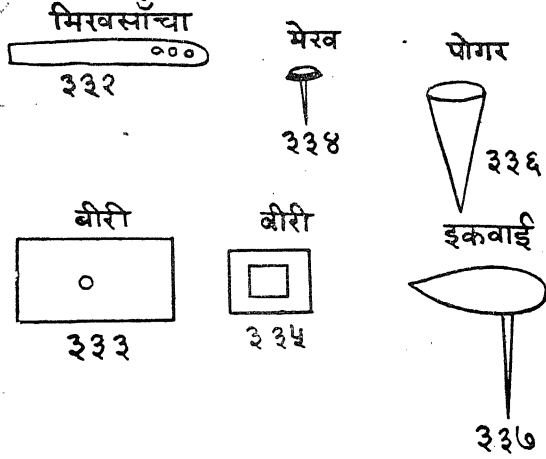 मिखसाँचा
३३२
मेख
३३४
पोगर
३३६
बीरी
३३३
बीरी
३३५
इकवाई
३३७